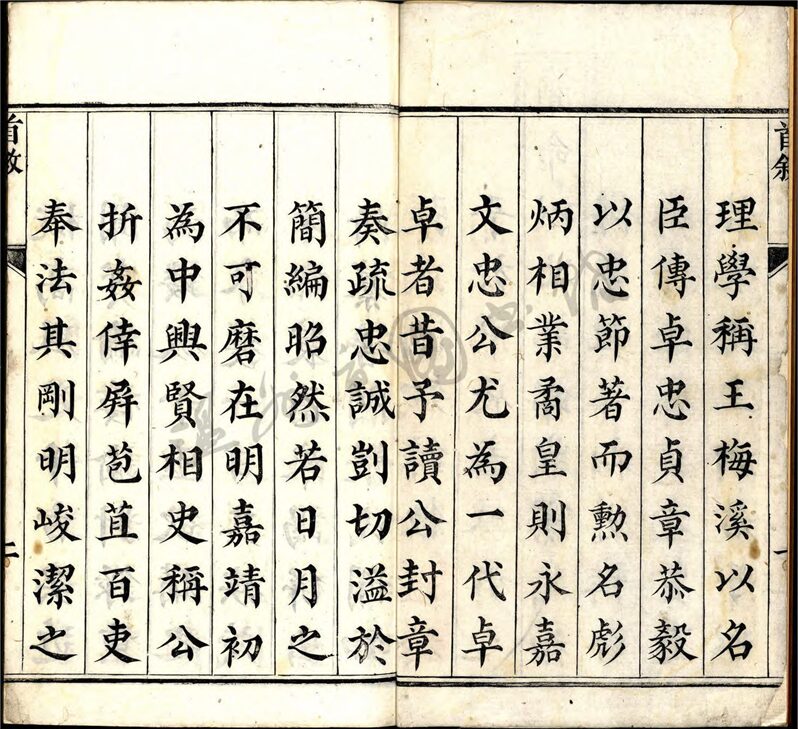 首敘
一
理學稱王梅溪以名
臣傳卓忠貞章恭毅
以忠節著而勲名彪
炳相業矞皇則永嘉
文忠公尤為一代卓
卓者昔予讀公封章
奏疏忠誠剴切溢於
簡編昭然若日月之
不可磨在明嘉靖初
為中興賢相史稱公
折姦倖屏苞苴百吏
奉法其剛明峻潔之
首敘
二